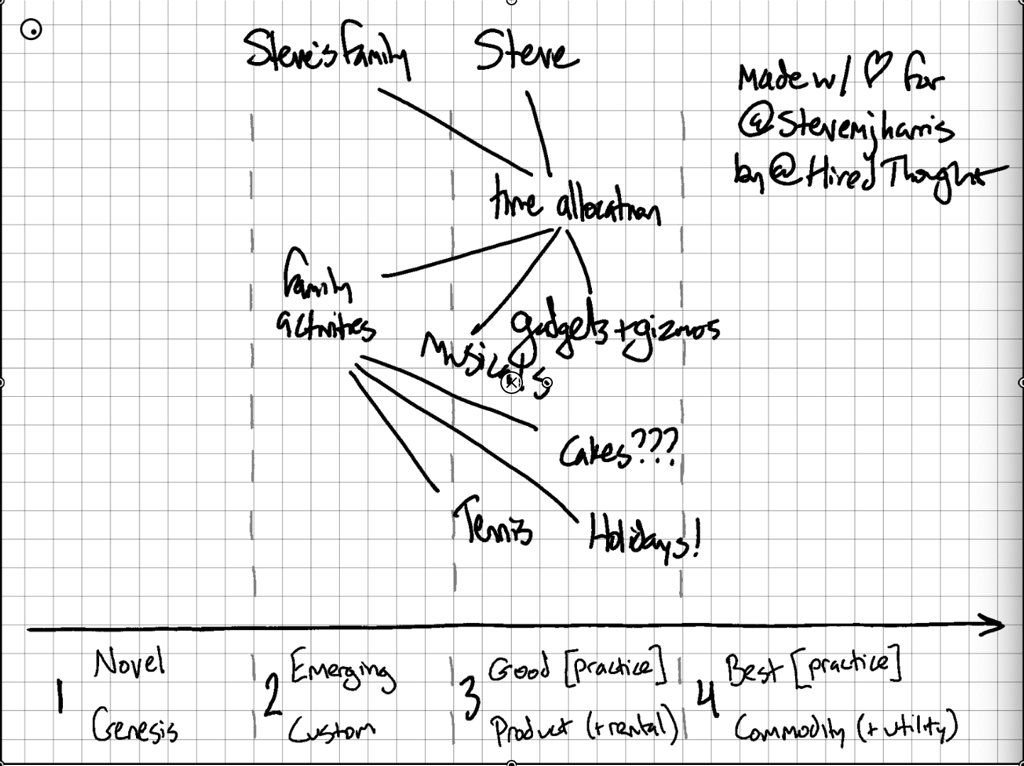 Steve's family
Steve
Made w/ ♡ for
@Stevemjharris
by @HiredThought
time allocation
family
activities
Musicals
gadgets + gizmos
Cakes???
Tennis
Holidays!
1
Novel
Genesis
2
Emerging
Custom
3
Good [practice]
Product (+rental)
4
Best [practice]
Commodity (+utility)